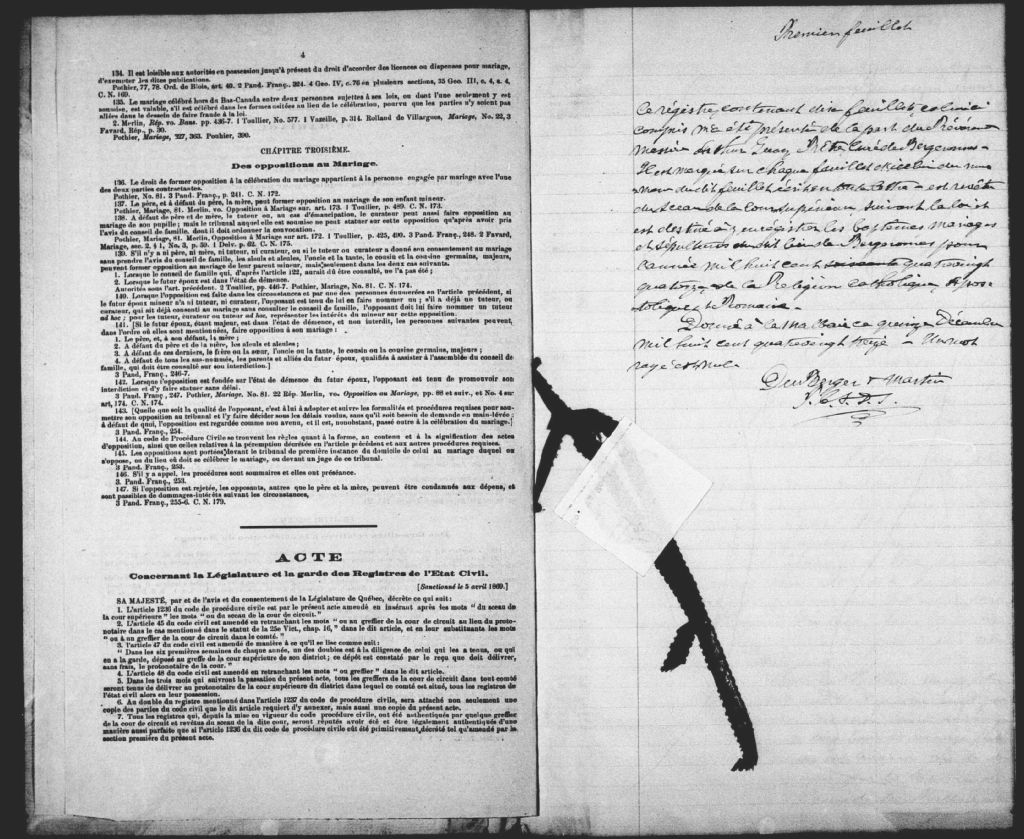 4
134. Il est loisible aux autorités en possession jusqu'à présent du droit d'accorder des licences ou dispenses pour mariage,
d'exempter les dites publications.
Pothier, 77, 78. Ord. de Blois, art. 40. 2 Pand. Franç. 224. 4 Geo. IV, c. 76 en plusieurs sections, 35 Geo. III, c. 4, s. 4,
C. N. 169.
135. Le mariage célébré hors du Bas-Canada entre deux personnes sujettes à ses lois, ou dont l'une seulement y est
soumise, est valable, s'il est célébré dans les formes usitées au lieu de la célébration, pourvu que les parties n'y soient pas
allées dans le dessein de faire fraude à la loi.
2. Merlin, Rép. vo. Bans. pp. 436-7. 1 Toullier, No. 577. 1 Vazille, p. 314. Rolland de Villargues, Mariage, No. 22, 3
Favard, Rép., p. 30.
Pothier, Mariage, 327, 363. Pouhier, 390.
CHAPITRE TROISIÈME.
Des oppositions au Mariage.
136. Le droit de former opposition à la célébration du mariage appartient à la personne engagée par mariage avec l'une
des deux parties contractantes.
Pothier, No. 81. 3 Pand. Franç., p. 241. C. N. 172.
137. Le père, et à défaut du père, la mère, peut former opposition au mariage de son enfant mineur.
Pothier, Mariage, 81. Merlin, vo. Opposition à Mariage sur. art. 173. 1 Toullier, p. 489. C. N. 173.
138. A défaut de père et de mère, le tuteur ou, au cas d'émancipation, le curateur peut aussi faire opposition au
mariage de son pupille; mais le tribunal auquel elle est soumise ne peut statuer sur cette opposition qu'après avoir pris
l'avis du conseil de famille, dont il doit ordonner la convocation.
Pothier, Mariage, 81. Merlin, Opposition à Mariage sur art. 172. 1 Toullier, p. 425, 490. 3 Pand. Franç., 248. 2 Favard,
Mariage, sec. 2, § 1, No. 3, p. 59. 1 Delv. p. 62. C. N. 175.
139. S'il n'y a ni père, ni mère, ni tuteur, ni curateur, ou si le tuteur ou curateur a donné son consentement au mariage
sans prendre l'avis du conseil de famille, les aïeuls et aïeules, l'oncle et la tante, le cousin et la cousine germains, majeurs,
peuvent former opposition au mariage de leur parent mineur, mais seulement dans les deux cas suivants.
1. Lorsque le conseil de famille qui, d'après l'article 122, aurait dû être consulté, ne l'a pas été;
2. Lorsque le futur époux est dans l'état de démence.
Autorités sous l'art. précédent. 2 Toullier, pp. 446-7. Pothier, Mariage, No. 81. C. N. 174.
140. Lorsque l'opposition est faite dans les circonstances et par une des personnes énumérées en l'article précédent, si
le futur époux mineur n'a ni tuteur, ni curateur, l'opposant est tenu de lui en faire nommer un; s'il a déjà un tuteur, ou
curateur, qui ait déjà consenti au mariage sans consulter le conseil de famille, l'opposant doit lui faire nommer un tuteur
ad hoc; pour les tuteur, curateur ou tuteur ad hoc, représenter les intérêts du mineur sur cette opposition.
141. [Si le futur époux, étant majeur, est dans l'état de démence, et non interdit, les personnes suivantes peuvent,
dans l'ordre où elles sont mentionnées, faire opposition à son mariage:
1. Le père, et, à son défaut, la mère;
2. A défaut du père et de la mère, les aïeuls et aïeules;
3. A défaut de ces derniers, le frère ou la sœur, l'oncle ou la tante, le cousin ou la cousine germains, majeurs;
4. A défaut de tous les sus-nommés, les parents et alliés du futur époux, qualifiés à assister à l'assemblée du conseil de
famille, qui doit être consulté sur son interdiction.]
3 Pand. Franç., 246-7.
142. Lorsque l'opposition est fondée sur l'état de démence du futur époux, l'opposant est tenu de promouvoir son
interdiction et d'y faire statuer sans délai.
3 Pand. Franç., 247. Pothier, Mariage. No. 81. 22 Rép. Merlin, vo. Opposition au Mariage, pp. 88 et suiv., et No. 4 sur
art. 174. C. N. 174.
143. [Quelque soit la qualité de l'opposant, c'est à lui à adopter et suivre les formalités et procédures requises pour soumettre
son opposition au tribunal et l'y faire décider sous les délais voulus, sans qu'il soit besoin de demande en main-levée;
à défaut de quoi, l'opposition est regardée comme non avenue, et il est, nonobstant, passé outre à la célébration du mariage.]
3 Pand. Franç., 254.
144. Au code de Procédure Civile se trouvent les règles quant à la forme, au contenu et à la signification des actes
d'opposition, ainsi que celles relatives à la péremption décrétée en l'article précédent et aux autres procédures requises.
145. Les oppositions sont portées devant le tribunal de première instance du domicile de celui au mariage duquel on
s'oppose, ou du lieu où doit se célébrer le mariage, ou devant un juge de ce tribunal.
3 Pand. Franç., 253.
146. S'il y a appel, les procédures sont sommaires et elles ont préséance.
3 Pand. Franç., 253.
147. Si l'opposition est rejetée, les opposants, autres que le père et la mère, peuvent être condamnés aux dépens, et
sont passibles de dommages-intérêts suivant les circonstances,
3 Pand. Franç., 255-6. C. N. 179.
ACTE
Concernant la Législature et la garde des Registres de l'Etat Civil.
[Sanctionné le 5 avril 1869.]
SA MAJESTÉ, par et de l'avis et du consentement de la Législature de Québec, décrète ce qui suit:
1. L'article 1236 du code de procédure civile est par le présent acte amendé en insérant après les mots "du sceau de
la cour supérieure" les mots "ou du sceau de la cour de circuit."
2. L'article 45 du code civil est amendé en retranchant les mots "ou au greffier de la cour de circuit au lieu du protonotaire
dans le cas mentionné dans le statut de la 25e Vict., chap. 16," dans le dit article, et en leur substituant les mots
"ou à un greffier de la cour de circuit dans le comté."
3. l'article 47 du code civil est amendé de manière à ce qu'il se lise comme suit:
"Dans les six premières semaines de chaque année, un des doubles est à la diligence de celui qui les a tenus, ou qui
en a la garde, déposé au greffe de la cour supérieure de son district; ce dépôt est constaté par le reçu que doit délivrer,
sans frais, le protonotaire de la cour."
4. L'article 48 du code civil est amendé en retranchant les mots "ou greffier" dans le dit article.
5. Dans les trois mois qui suivront la passation du présent acte, tous les greffiers de la cour de circuit dans tout comté
seront tenus de délivrer au protonotaire de la cour supérieure du district dans lequel ce comté est situé, tous les registres de
l'état civil alors en leur possession.
6. Au double du registre mentionné dans l'article 1237 du code de procédure civile, sera attaché non seulement une
copie des parties du code civil que le dit article requiert d'y annexer, mais aussi une copie du présent acte.
7. Tous les registres qui, depuis la mise en vigueur du code procédure civile, ont été authentiqués par quelque greffier
de la cour de circuit et revêtus du sceau de la dite cour, seront réputés avoir été et être légalement authentiqués d'une
manière aussi parfaite que si l'article 1236 du dit code de procédure civile eût été primitivement décrété tel qu'amendé par la
section première du présent acte.
Premier feuillet
Ce régistre contenant dix feuillets celui ci
compris m'a été présenté de la part du Révérend
Messire Arthur Guay Ptre Curé de Bergeronnes
Il est marqué sur chaque feuillet du nu
méro du dit feuillet écrit en toute lettre - est revêtu
du sceau de la Cour Supérieure suivant la loi et
est destiné à enregistrer les baptêmes mariages
et sépultures du dit lieu de Bergeronnes pour
l'année mil huit cent quatrevingt
quatorze de la Religion Catholique Apos
tolique et Romaine.
Donné à la Malbaie ce quinze Décembre
mil huit cent quatrevingt treize - Un mot
rayé est nul.
Du Berger & Martin
P. C. S. D. S.